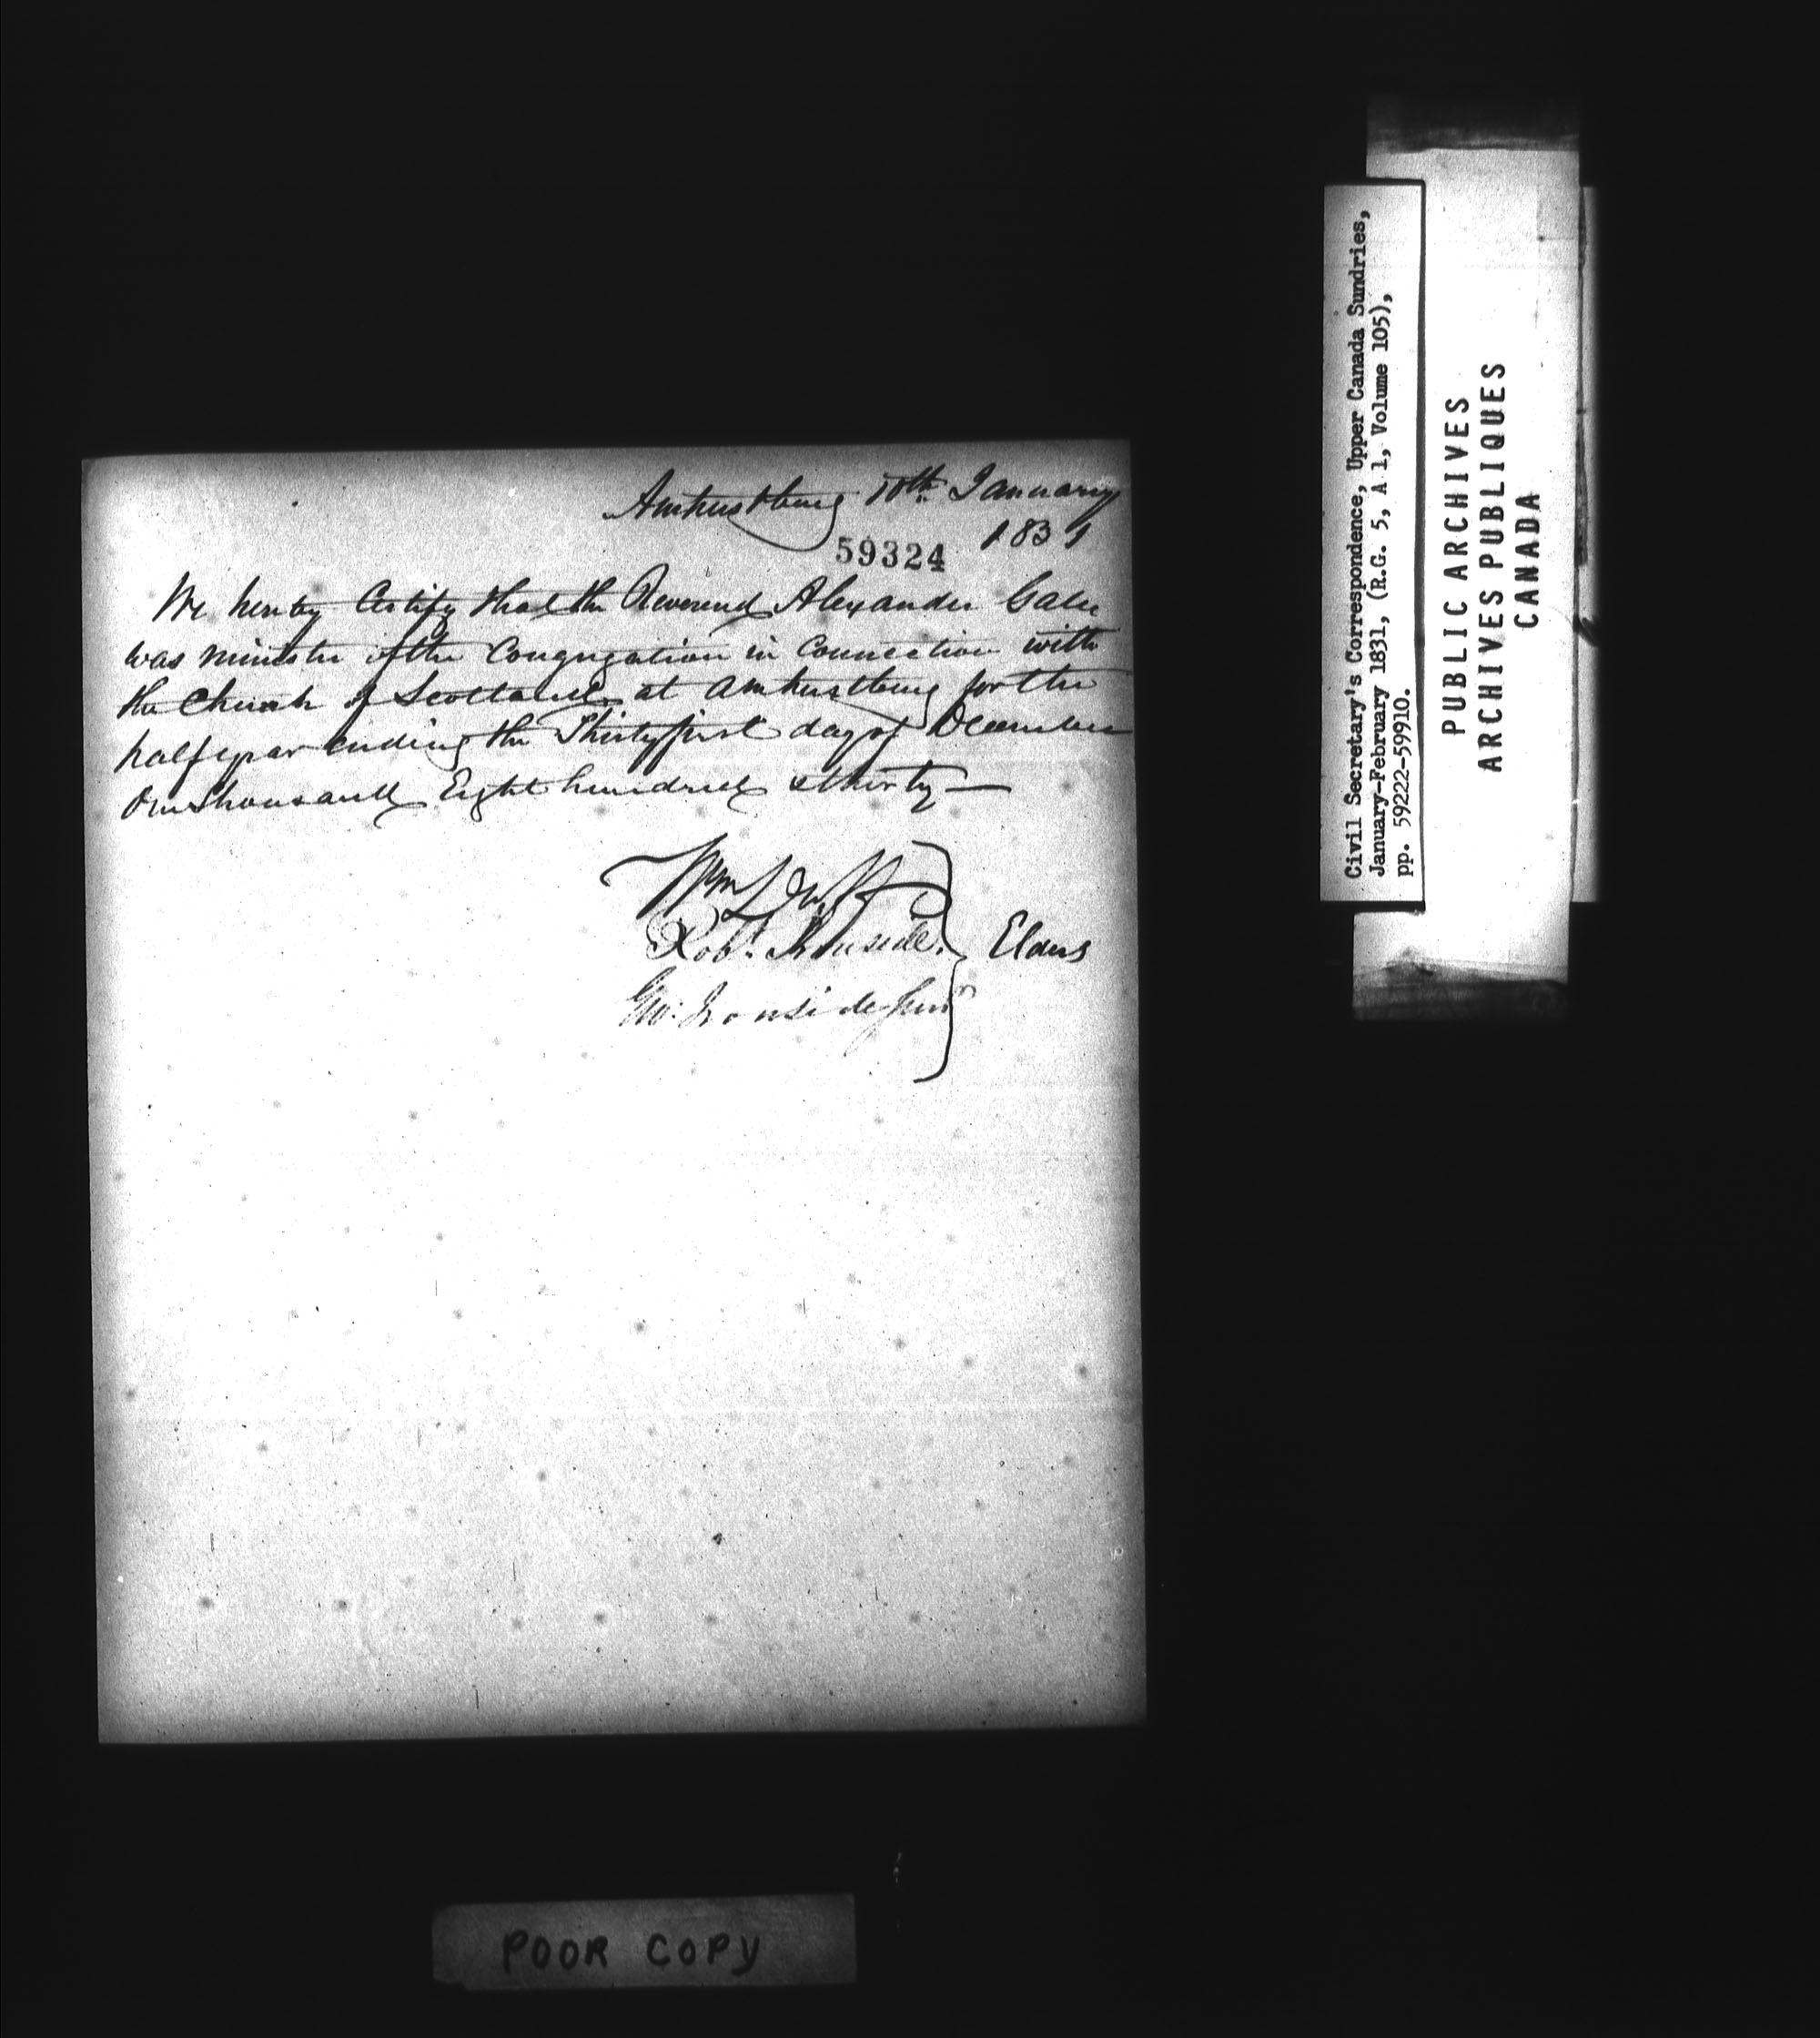 Amherstburg 10th January
1831
59324
We hereby Certify that the Reverend Alexander Gale
was minister of the Congregation in Connection with
the Church of Scotland at Amherstburg for the
half year ending the Thirty first day of December
One Thousand Eight hundred & thirty —
Wm
Robt. Ironside
Geo: Ironside Junr
Elders
Civil Secretary's Correspondence, Upper Canada Sundries,
January-February 1831, (R.G. 5, A 1, Volume 105),
pp. 59222-59910.
PUBLIC ARCHIVES
ARCHIVES PUBLIQUES
CANADA
POOR COPY